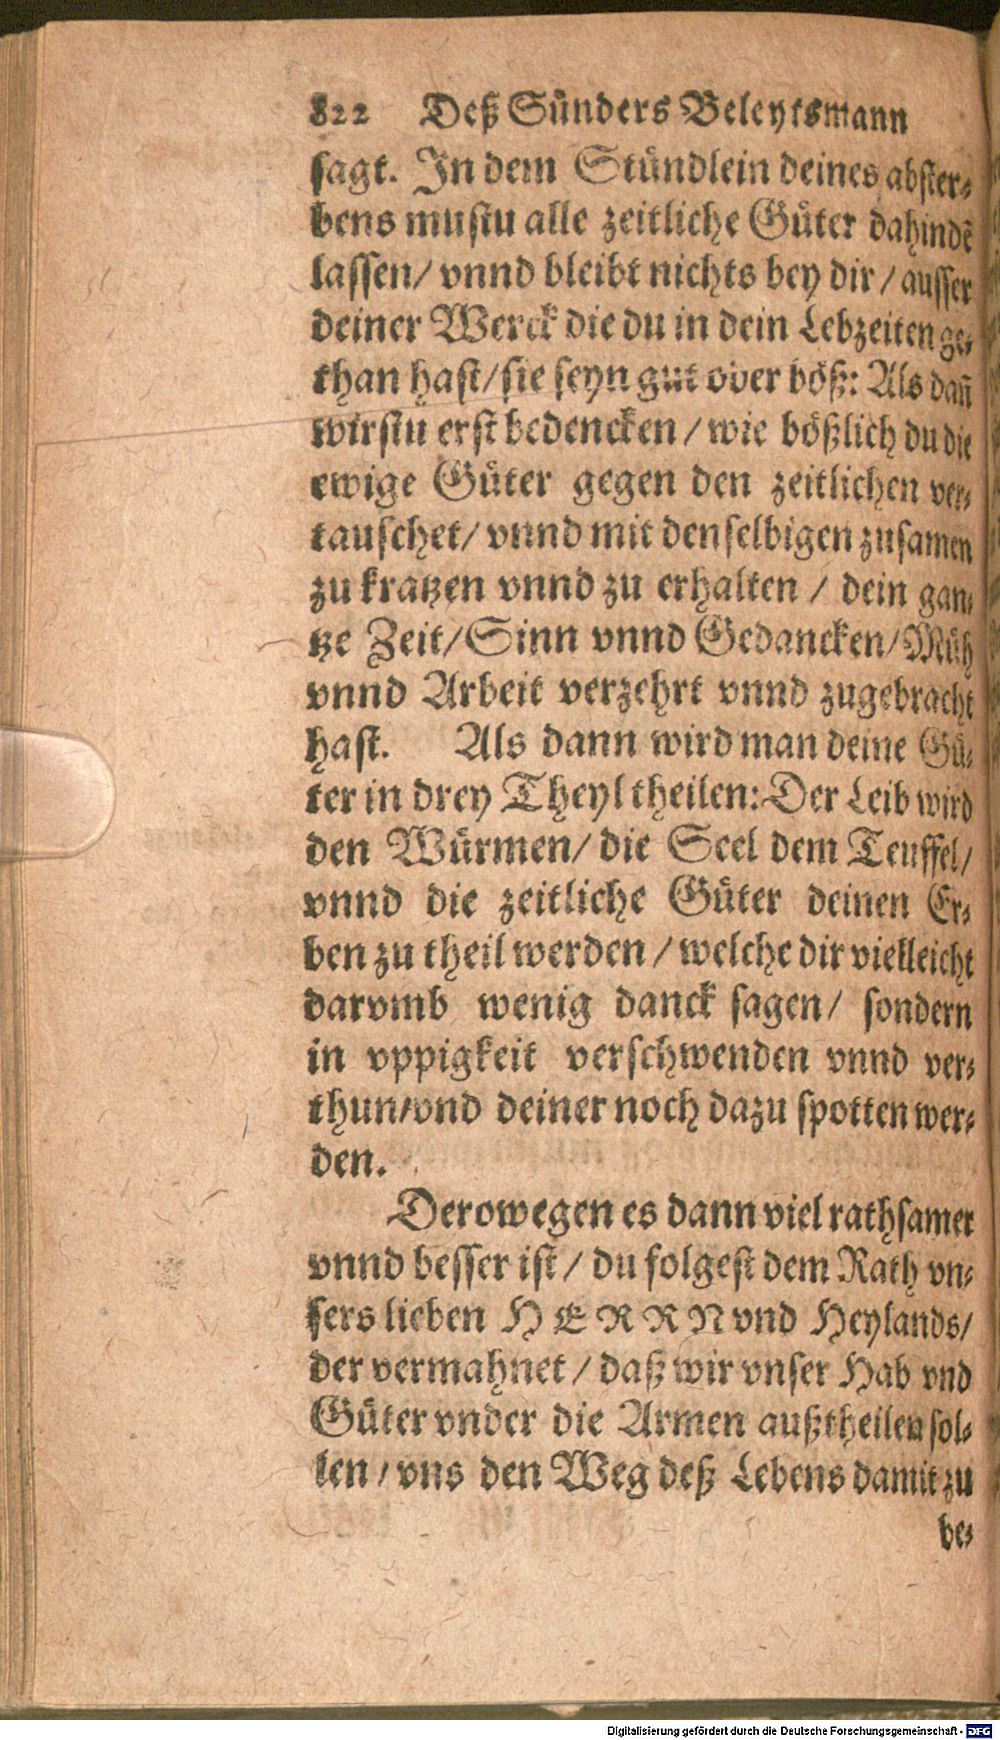 822 Deß Sünders Beleytsmann
sagt. In dem Stündlein deines abster-
bens mustu alle zeitliche Güter dahindē
lassen/ vnnd bleibt nichts bey dir/ ausser
deiner Werck die du in dein Lebzeiten ge-
than hast/ sie seyn gut oder böß: Als dañ
wirstu erst bedencken/ wie bößlich du die
ewige Güter gegen den zeitlichen ver-
tauschet/ vnnd mit denselbigen zusamen
zu kratzen vnnd zu erhalten/ dein gan-
tze Zeit/ Sinn vnnd Gedancken/ Müh
vnnd Arbeit verzehrt vnnd zugebracht
hast. Als dann wird man deine Gü-
ter in drey Theyl theilen: Der Leib wird
den Würmen/ die Seel dem Teuffel/
vnnd die zeitliche Güter deinen Er-
ben zu theil werden/ welche dir vielleicht
darvmb wenig danck sagen/ sondern
in vppigkeit verschwenden vnnd ver-
thun/ vnd deiner noch dazu spotten wer-
den.
Derowegen es dann viel rathsamer
vnnd besser ist/ du folgest dem Rath vn-
sers lieben HERRN vnd Heylands/
der vermahnet/ daß wir vnser Hab vnd
Güter vnder die Armen außtheilen sol-
len/ vns den Weg deß Lebens damit zu
be-
Digitalisierung gefördert durch die Deutsche Forschungsgemeinschaft - DFG